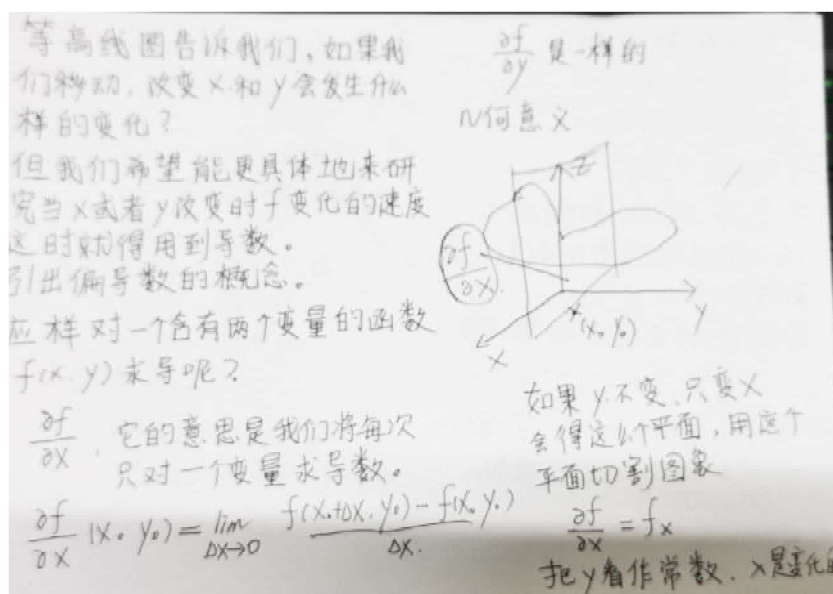 等高线图告诉我们,如果我
们移动,改变x和y会发生什么
样的变化?
但我们希望能更具体地来研
究当x或者y改变时f变化的速度
这时就得用到导数。
引出偏导数的概念。
样对一个含有两个变量的函数
f(x.y)求导呢?
∂f/∂x,它的意思是我们将每次
只对一个变量求导数。
∂f/∂x (x₀ y₀) = lim Δx→0 f(x₀+Δx.y₀)-f(x₀ y₀) / Δx.
∂f/∂y 是一样的
几何意义
z
∂f/∂x
x
(x₀ y₀)
y
如果y不变,只变x
会得这么个平面,用这个
平面切割图象
∂f/∂x = fx
把y看作常数.x是变化的